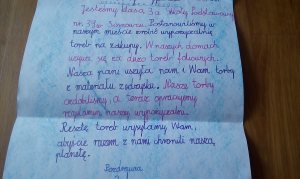 Jesteśmy klasą 3a Szkoły Podstawowej
nr 39 w Sosnowcu. Postanowiliśmy w
naszym mieście zrobić wypożyczalnię
toreb na zakupy. W naszych domach
używa się za dużo toreb foliowych.
Nasza pani uszyła nam i Wam, torby
z materiału z odzysku. Naszą torbę
ozdobiliśmy, a teraz opracujemy
regulamin naszej wypożyczalni.
Resztę toreb wysyłamy Wam,
abyście razem z nami chronili naszą
planetę.
Pozdrawia